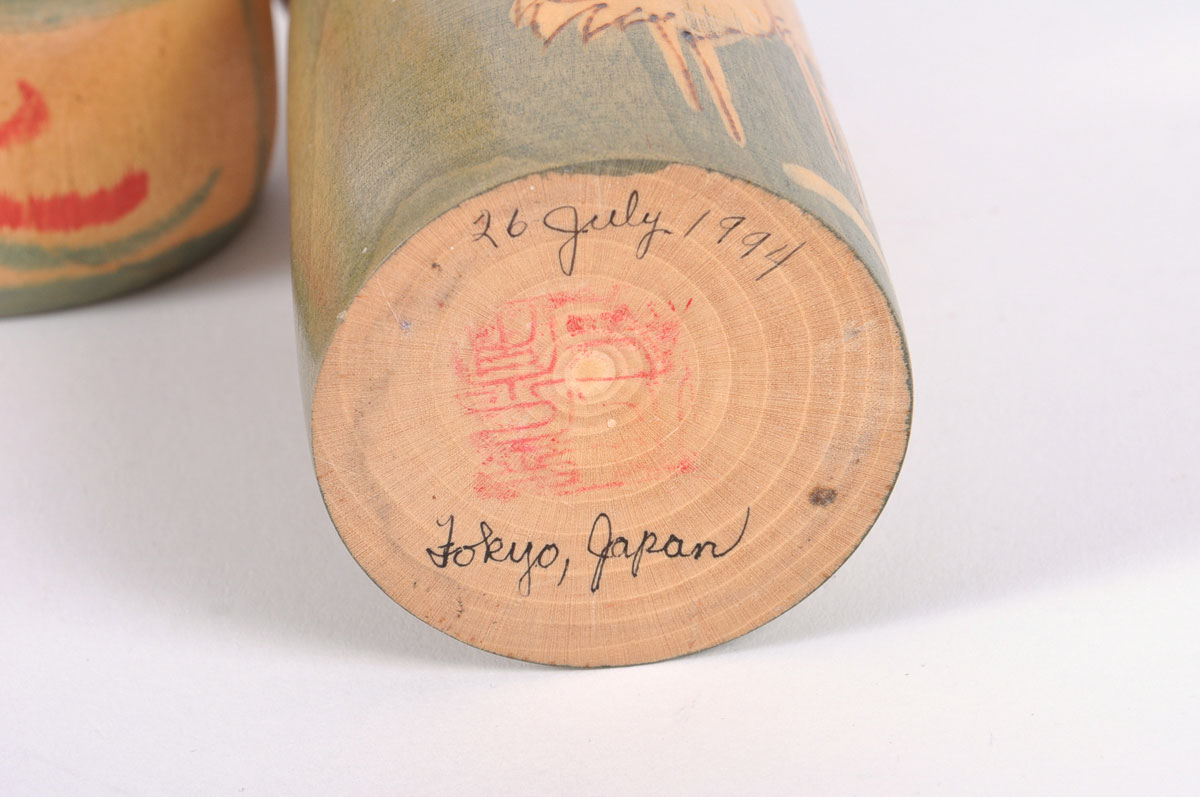 26 July 1994
Tokyo, Japan